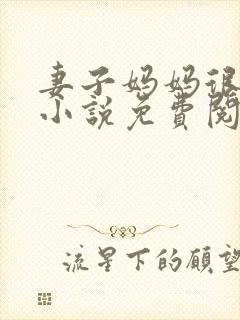 妻子妈妈很
小說免費閱
流星下的願望